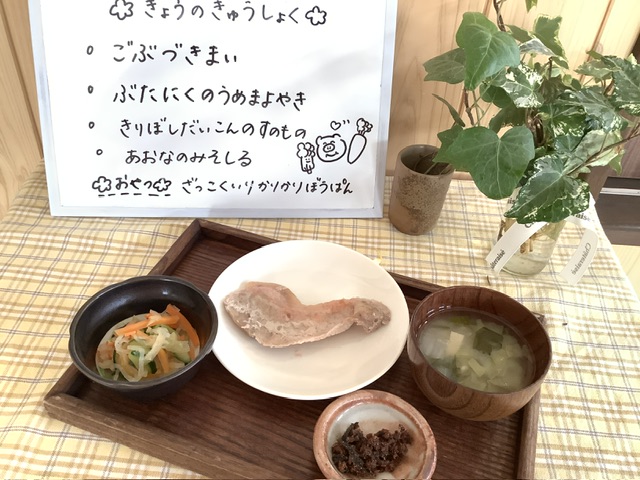 きょうのきゅうしょく
ごぶづきまい
ぶたにくのうめまよやき
きりぼしだいこんのすのもの
あおなのみそしる
おやつ ざっこくいりかりかりぼうぱん